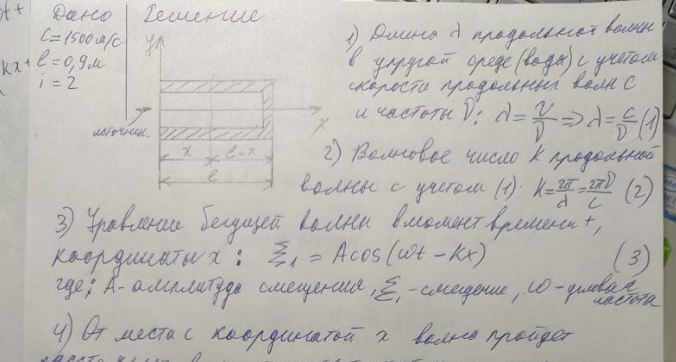 Дано
Решение
C=1500 м/с
l=0,9м
i=2
kx+
y
источник.
x
x
l-x
l
1) Длина λ продольной волны
в упругой среде (воды) с учетом
скорости продольных волн C
и частоты ν: λ = υ/ν => λ = c/ν (1)
2) Волновое число K продольной
волны с учетом (1): K = 2π/λ = 2πν/c (2)
3) Уравнение бегущей волны в момент времени t,
координаты x: ξ₁ = A cos(ωt - kx) (3)
где; A- амплитуда смещения, ξ₁ -смещение, ω -угловая
частота
4) От места с координатой x волна пройдет